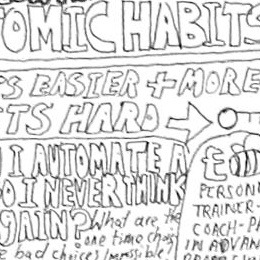 TOMIC HABITS
'S EASIER + MORE
TS HARD →
I AUTOMATE A
O I NEVER THINK
GAIN?
What are the
one time choic
e bad choices impossible!
£
PERSON
TRAINER-
COACH-PA
IN ADVAN